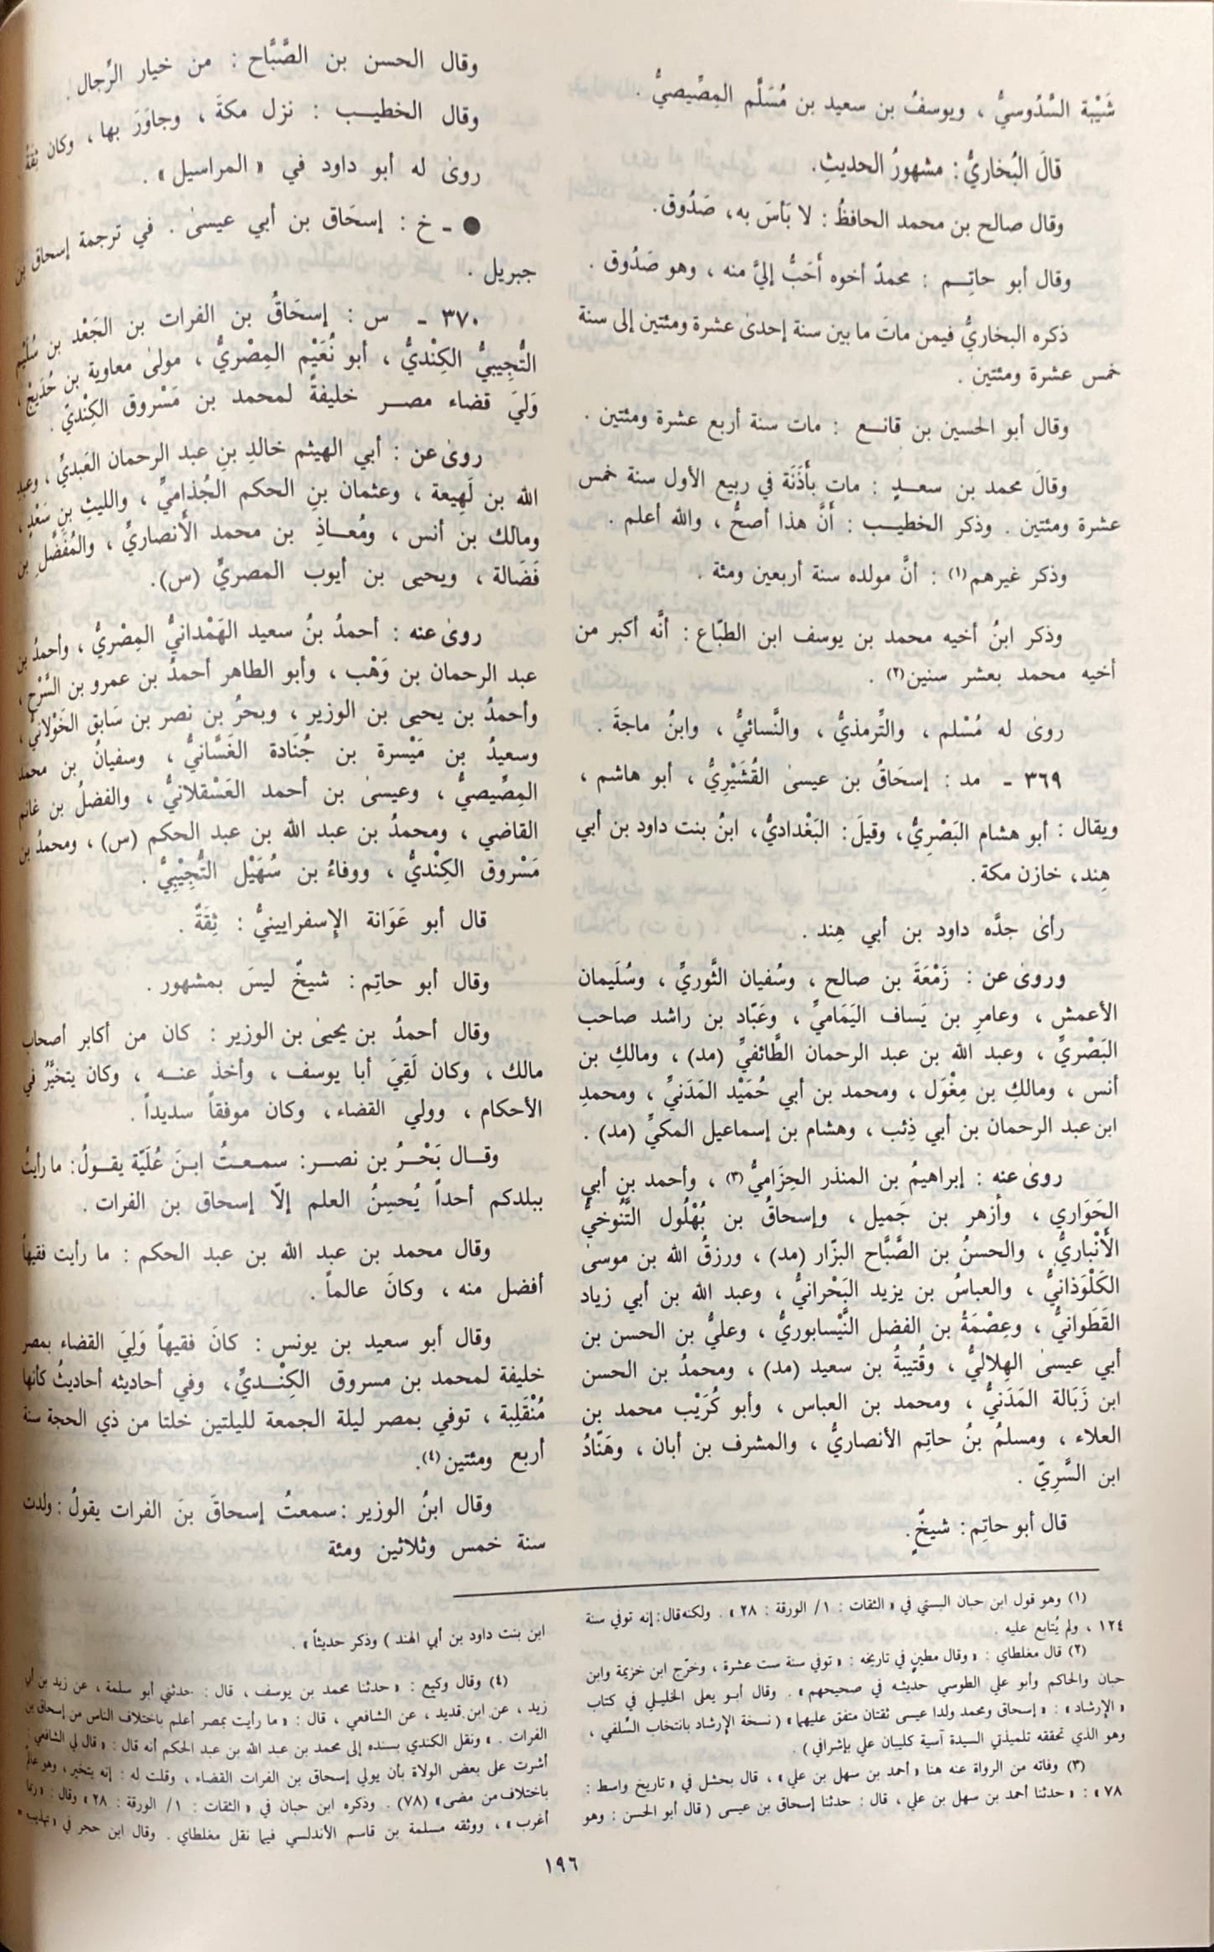 شَيْبة السَّدُوسيُّ ، ويوسفُ بن سعيد بن مُسَلَّم المِصِّيصيُّ .
قالَ البُخاريُّ: مشهورُ الحديثِ.
وقال صالح بن محمد الحافظُ: لا بَأسَ به، صَدُوق.
وقال أبو حاتِم : محمدٌ أخوه أَحَبُّ إليَّ منه ، وهو صَدُوق .
ذكره البخاريُّ فيمن ماتَ ما بين سنة إحدىٰ عشرة ومئتين إلى سنة
خمس عشرة ومئتين .
وقال أبو الحسين بن قانع : مات سنة أربع عشرة ومئتين .
وقالَ محمد بن سعدٍ : مات بأَذَنَة في ربيع الأول سنة خمس
عشرة ومئتين . وذكر الخطيب : أَنَّ هذا أصحُّ ، والله أعلم .
وذكر غيرهم(١) : أنَّ مولده سنة أربعين ومئة .
وذكر ابنُ أخيه محمد بن يوسف ابن الطبّاع : أنَّه أكبر من
أخيه محمد بعشر سنين(٢) .
روىٰ له مُسْلم ، والتِّرمذيُّ ، والنَّسائيُّ ، وابنُ ماجةَ .
٣٦٩ - مد : إسحَاقُ بن عيسىٰ القُشَيْرِيُّ ، أبو هاشم ،
ويقال : أبو هشام البَصْرِيُّ، وقيلَ: البَغْداديُّ، ابنُ بنت داود بن أبي
هِند، خازن مكة.
رأىٰ جدَّه داود بن أبي هِند .
وروىٰ عن : زَمْعَةَ بن صالح ، وسُفيان الثَّوريِّ ، وسُلَيمان
الأعمش ، وعامرِ بن يَساف اليَمَاميِّ ، وعَبّاد بن راشد صاحب
البَصْريِّ ، وعبد الله بن عبد الرحمان الطَّائفيِّ (مد) ، ومالكِ بن
أنس ، ومالكِ بن مِغْوَل ، ومحمد بن أبي حُمَيْد المَدَنيِّ ، ومحمدِ
ابن عبد الرحمان بن أبي ذِئب ، وهشام بن إسماعيل المكيِّ (مد) .
روىٰ عنه : إبراهيمُ بن المنذر الحِزَاميُّ(٣) ، وأحمد بن أبي
الحَوَاري ، وأزهر بن جَميل ، وإسحاقُ بن بُهْلُول التَّنُوخيُّ
الأَنْباريُّ ، والحسنُ بن الصَّبَّاح البزّار (مد) ، ورزقُ الله بن موسىٰ
الكَلْوَذانيُّ ، والعباسُ بن يزيد البَحْرانيُّ ، وعبد الله بن أبي زياد
القَطَوانيُّ ، وعِصْمَةُ بن الفضل النَّيْسابوريُّ ، وعليُّ بن الحسن بن
أبي عيسىٰ الهِلاليُّ ، وقُتيبةُ بن سعيد (مد) ، ومحمدُ بن الحسن
ابن زَبَالة المَدَنيُّ ، ومحمد بن العباس ، وأبو كُرَيْب محمد بن
العلاء ، ومسلمُ بنُ حاتِم الأنصاريُّ ، والمشرف بن أبان ، وهَنّادُ
ابن السَّرِيّ .
قال أبو حاتِم: شيخٌ.
وقال الحسن بن الصَّبَّاح : من خيار الرِّجال .
وقال الخطيب : نزل مكةَ ، وجاوَرَ بها ، وكان ثِقَةً .
روىٰ له أبو داود في « المراسيل » .
● - خ : إسحَاق بن أبي عيسىٰ . في ترجمة إسحاق بن
جبريل .
٣٧٠ - س : إسحَاقُ بن الفرات بن الجَعْد بن سُلَيْم
التُّجِيبيُّ الكِنْديُّ ، أبو نُعَيْم المِصْريُّ ، مولىٰ معاوية بن حُدَيج ،
وَليَ قضاء مصر خليفةً لمحمد بن مَسْروق الكِنْديِّ .
روىٰ عن : أبي الهيثم خالدِ بنِ عبد الرحمان العَبديِّ ، وعبدِ
الله بن لَهِيعة ، وعثمان بنِ الحكم الجُذاميِّ ، والليثِ بنِ سَعْدٍ ،
ومالك بن أنس ، ومُعاذِ بن محمد الأَنصاريِّ ، والمُفَضَّلِ بن
فَضَالة ، ويحيى بن أيوب المصريِّ (س).
روىٰ عنه : أحمدُ بنُ سعيد الهَمْدانيُّ المِصْريُّ ، وأحمدُ بن
عبد الرحمان بن وَهْب ، وأبو الطاهر أحمدُ بن عمرو بن السَّرْح ،
وأحمدُ بن يحيى بن الوزير ، وبحرُ بن نصر بن سَابق الخَوْلانيُّ ،
وسعيدُ بن مَيْسرة بن جُنَادة الغَسَّانيُّ ، وسفيانُ بن محمد
المِصِّيصيُّ ، وعيسىٰ بن أحمد العَسْقلانيُّ ، والفضلُ بن غانم
القاضي ، ومحمدُ بن عبد الله بن عبد الحكم (س) ، ومحمدُ بن
مَسْروق الكِنْديُّ ، ووفاءُ بن سُهَيْل التُّجِيْبِيُّ .
قال أبو عَوَانة الإِسفرايينيُّ : ثِقَةٌ .
وقال أبو حاتِم : شيخٌ ليسَ بمشهور .
وقال أحمدُ بن يحيىٰ بن الوزير : كان من أكابر أصحاب
مالك ، وكان لَقِيَ أبا يوسف ، وأخذ عنه ، وكان يتخيَّرُ في
الأحكام ، وولي القضاء، وكان موفقاً سديداً .
وقال بَحْرُ بن نصر: سمعتُ ابنَ عُلَيّة يقولُ: ما رأيتُ
ببلدكم أحداً يُحسِنُ العلم إلّا إسحاق بن الفرات .
وقال محمد بن عبد الله بن عبد الحكم : ما رأيت فقيهاً
أفضل منه ، وكانَ عالماً .
وقال أبو سعيد بن يونس : كانَ فقيهاً وَليَ القضاء بمصر
خليفة لمحمد بن مسروق الكِنْديِّ، وفي أحاديثه أحاديثُ كأنها
مُنْقَلِبة ، توفي بمصر ليلة الجمعة لليلتين خلتا من ذي الحجة سنة
أربع ومئتين(٤).
وقال ابنُ الوزير :سمعتُ إسحاقَ بنَ الفرات يقولُ: ولدت
سنة خمس وثلاثين ومئة
(١) وهو قول ابن حبان البستي في « الثقات : ١/ الورقة : ٢٨ » . ولكنه قال: إنه توفي سنة
١٢٤ ، ولم يُتابع عليه .
(٢) قال مغلطاي : « وقال مطين في تاريخه : « توفي سنة ست عشرة ، وخرّج ابن خزيمة وابن
حبان والحاكم وأبو علي الطوسي حديثه في صحيحهم » . وقال أبو يعلى الخليلي في كتاب
« الإرشاد » : « إسحاق ومحمد ولدا عيسى ثقتان متفق عليهما » ( نسخة الإرشاد بانتخاب السِّلفي ،
وهو الذي تحققه تلميذتي السيدة آسية كليبان علي بإشرافي ) .
(٣) وفاته من الرواة عنه هنا « أحمد بن سهل بن علي » ، قال بحشل في « تاريخ واسط :
٧٨ » : « حدثنا أحمد بن سهل بن علي ، قال : حدثنا إسحاق بن عيسى ( قال أبو الحسن : وهو
ابن بنت داود بن أبي الهند ) وذكر حديثاً » .
(٤) وقال وكيع : « حدثنا محمد بن يوسف ، قال : حدثني أبو سلمة ، عن زيد بن أبي
زيد ، عن ابن قديد ، عن الشافعي ، قال : « ما رأيت بمصر أعلم باختلاف الناس من إسحاق بن
الفرات . » ونقل الكندي بسنده إلى محمد بن عبد الله بن عبد الحكم أنه قال : « قال لي الشافعي :
أشرت على بعض الولاة بأن يولي إسحاق بن الفرات القضاء ، وقلت له : إنه يتخير ، وهو عالمٌ
باختلاف من مضى» (٧٨) . وذكره ابن حبان في « الثقات : ١/ الورقة : ٢٨ » وقال : « ربما
أغرب » ، ووثقه مسلمة بن قاسم الأندلسي فيما نقل مغلطاي . وقال ابن حجر في « تهذيب »
١٩٦